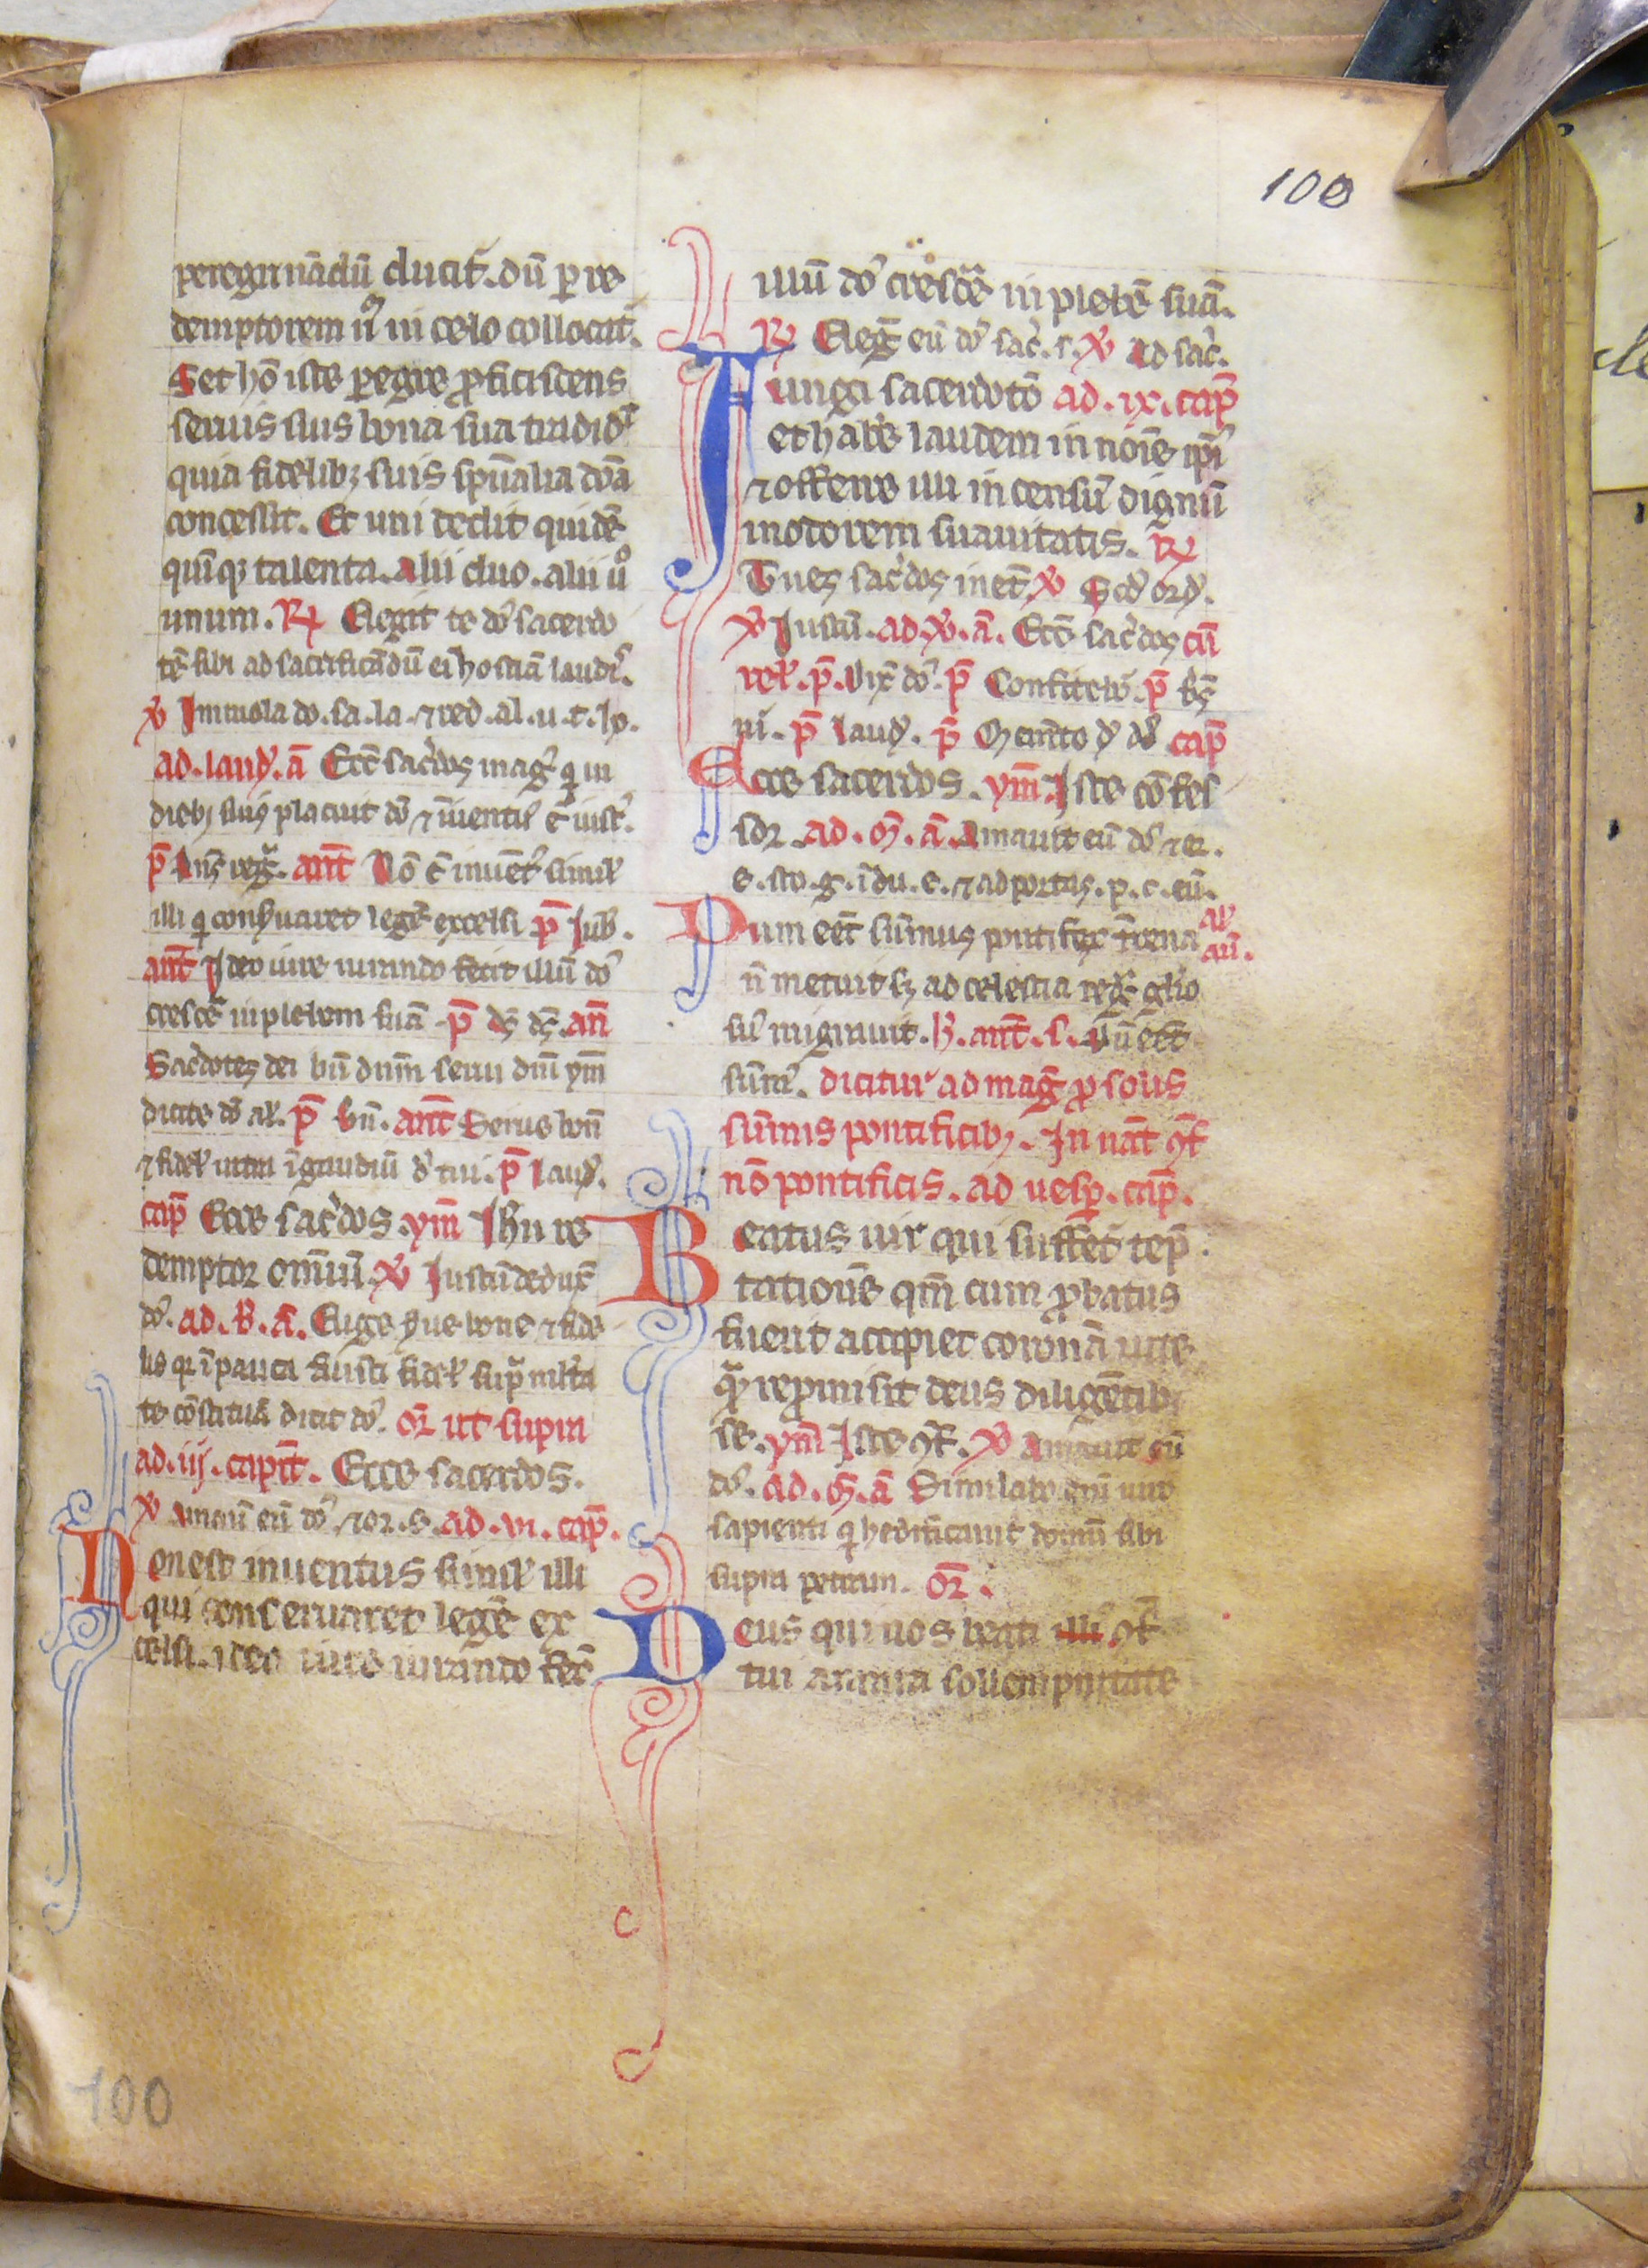 100
peregrinādū ducit̄. dū ꝑ re
demptorem nr̄ in celo collocat̄.
Set hō iste ꝑegre ꝓficiscens
seruis suis bona sua tradidt
quia fidelibꝫ suis spūalia dōa
concessit. Et uni dedit quidē
quīqꝫ talenta. alii duo. alii uº
unum. ℟ Elegit te dō sacerdo
tē sibi ad sacrificādū ei hostiā laud̄.
℣ Immola do. sa. la. ⁊ red. al. u. t.
ad. laud. ā Ecc̄ sac̄dos maḡ q̄ in
diebꝫ suis placuit dō ⁊ īuent̄ ē iust.
p̄ Dn̄s reḡ. ant̄ Nō ē inuēt̄ simil̄
illi q̄ conẜuaret legē excelsi p̄ Iub̄.
ant̄ Ideo iure iurando fecit illū dō
cresc̄e in plebem suā. p̄ ds̄ ds̄. an̄
Sac̄dotes dei bn̄ dnm̄ serui dnī ym̄
dicite dō al̄. p̄ bn̄. ant̄ Serue bon̄
⁊ fidel̄ intra ī gaudiū d̄ tui. p̄ laud̄.
cap̄ Ecce sac̄dos. ym̄ Ihu re
demptor omiū. ℣ Iustū deduxͭ
dō. ad. b̄. ā. Euge ẜue bone ⁊ fide
lis qꝛ ī pauca fuisti fidel̄ sup̄ mlta
te cōstituā dicit dō. oꝛ̄ ut supra
ad. iij. capit̄. Ecce sacerdos.
℣ Amauͭ eū dō. ⁊ or. e. ad. vi. cap̄.
Non est inuentus simil̄ illi
qui conseruaret legē ex
celsi. ideo iure iurando fec̄
illū dō cresc̄e in plebē suā.
℟ Eleḡ eū dō sac̄. s. ℣ Ad sac̄.
Fungi sacerdotō ad. ix. cap̄
et habe laudem in noīe ip̄i
⁊ offerre illi incensū dignū
in odorem suauitatis. ℟
Tu es sac̄dos in et̄. ℣ Scd̄ ord̄.
℣ Iustū. ad. ℣. ā. Ecc̄ sac̄dos cū
rel̄. p̄. Dix̄ dō. p̄ Confitebō. p̄ bs̄
ui. p̄ Laud̄. p̄ Memto d̄ dd̄ cap̄
Ecce sacerdos. ym̄ Iste cōfes
soꝛ. ad. m̄. ā. Amauit eū dō ⁊ or.
e. sto. g. īdu. e. ⁊ ad portas. p. c. eū.
Dum eēt sūmus pontifex t̄rena al̄ an̄.
n̄ metuit sꝫ ad celestia reḡ glō
sus̄ migrauit. h̄. ant̄. s. Dū eēt
sūm̄. dicitur ad maḡ ꝓ solis
sūmis pontificibꝫ. In nat̄ ꝯf̄
nō pontificis. ad uesp̄. cap̄.
Beatus uir qui suffert tep̄
tationē qm̄ cum ꝓbatus
fuerit accipiet coronā uite
quā reꝓmisit deus diligētibꝫ
se. ym̄ Iste ꝯf̄. ℣ Amauit eū
dō. ad. m̄. ā Similabo eū uiro
sapienti q̄ hedificauit domū sibi
supra petram. oꝛ̄.
Deus qui nos beati illi ꝯf̄
tui annua sollempnitate
100